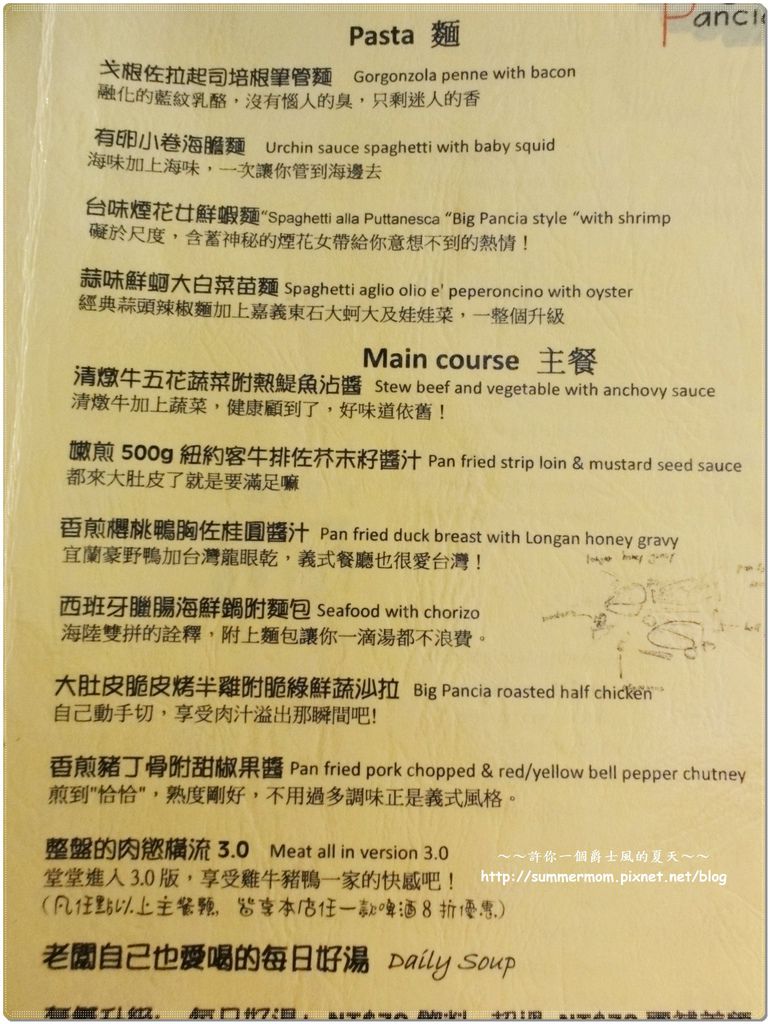 Pancia
Pasta 麵
戈根佐拉起司培根筆管麵 Gorgonzola penne with bacon
融化的藍紋乳酪，沒有惱人的臭，只剩迷人的香
有卵小卷海膽麵 Urchin sauce spaghetti with baby squid
海味加上海味，一次讓你管到海邊去
台味煙花女鮮蝦麵“Spaghetti alla Puttanesca “Big Pancia style “with shrimp
礙於尺度，含蓄神秘的煙花女帶給你意想不到的熱情！
蒜味鮮蚵大白菜苗麵 Spaghetti aglio olio e' peperoncino with oyster
經典蒜頭辣椒麵加上嘉義東石大蚵大及娃娃菜，一整個升級
Main course 主餐
清燉牛五花蔬菜附熱鯷魚沾醬 Stew beef and vegetable with anchovy sauce
清燉牛加上蔬菜，健康顧到了，好味道依舊！
嫩煎 500g 紐約客牛排佐芥末籽醬汁 Pan fried strip loin & mustard seed sauce
都來大肚皮了就是要滿足嘛
香煎櫻桃鴨胸佐桂圓醬汁 Pan fried duck breast with Longan honey gravy
宜蘭豪野鴨加台灣龍眼乾，義式餐廳也很愛台灣！
西班牙臘腸海鮮鍋附麵包 Seafood with chorizo
海陸雙拼的詮釋，附上麵包讓你一滴湯都不浪費。
大肚皮脆皮烤半雞附脆綠鮮蔬沙拉 Big Pancia roasted half chicken
自己動手切，享受肉汁溢出那瞬間吧!
香煎豬丁骨附甜椒果醬 Pan fried pork chopped & red/yellow bell pepper chutney
煎到"恰恰"，熟度剛好，不用過多調味正是義式風格。
整盤的肉慾橫流 3.0 Meat all in version 3.0
堂堂進入 3.0 版，享受雞牛豬鴨一家的快感吧！
～～許你一個爵士風的夏天～～
http://summermom.pixnet.net/blog
(凡任點以上主餐類，皆享本店任一款啤酒8折優惠)
老闆自己也愛喝的每日好湯 Daily Soup